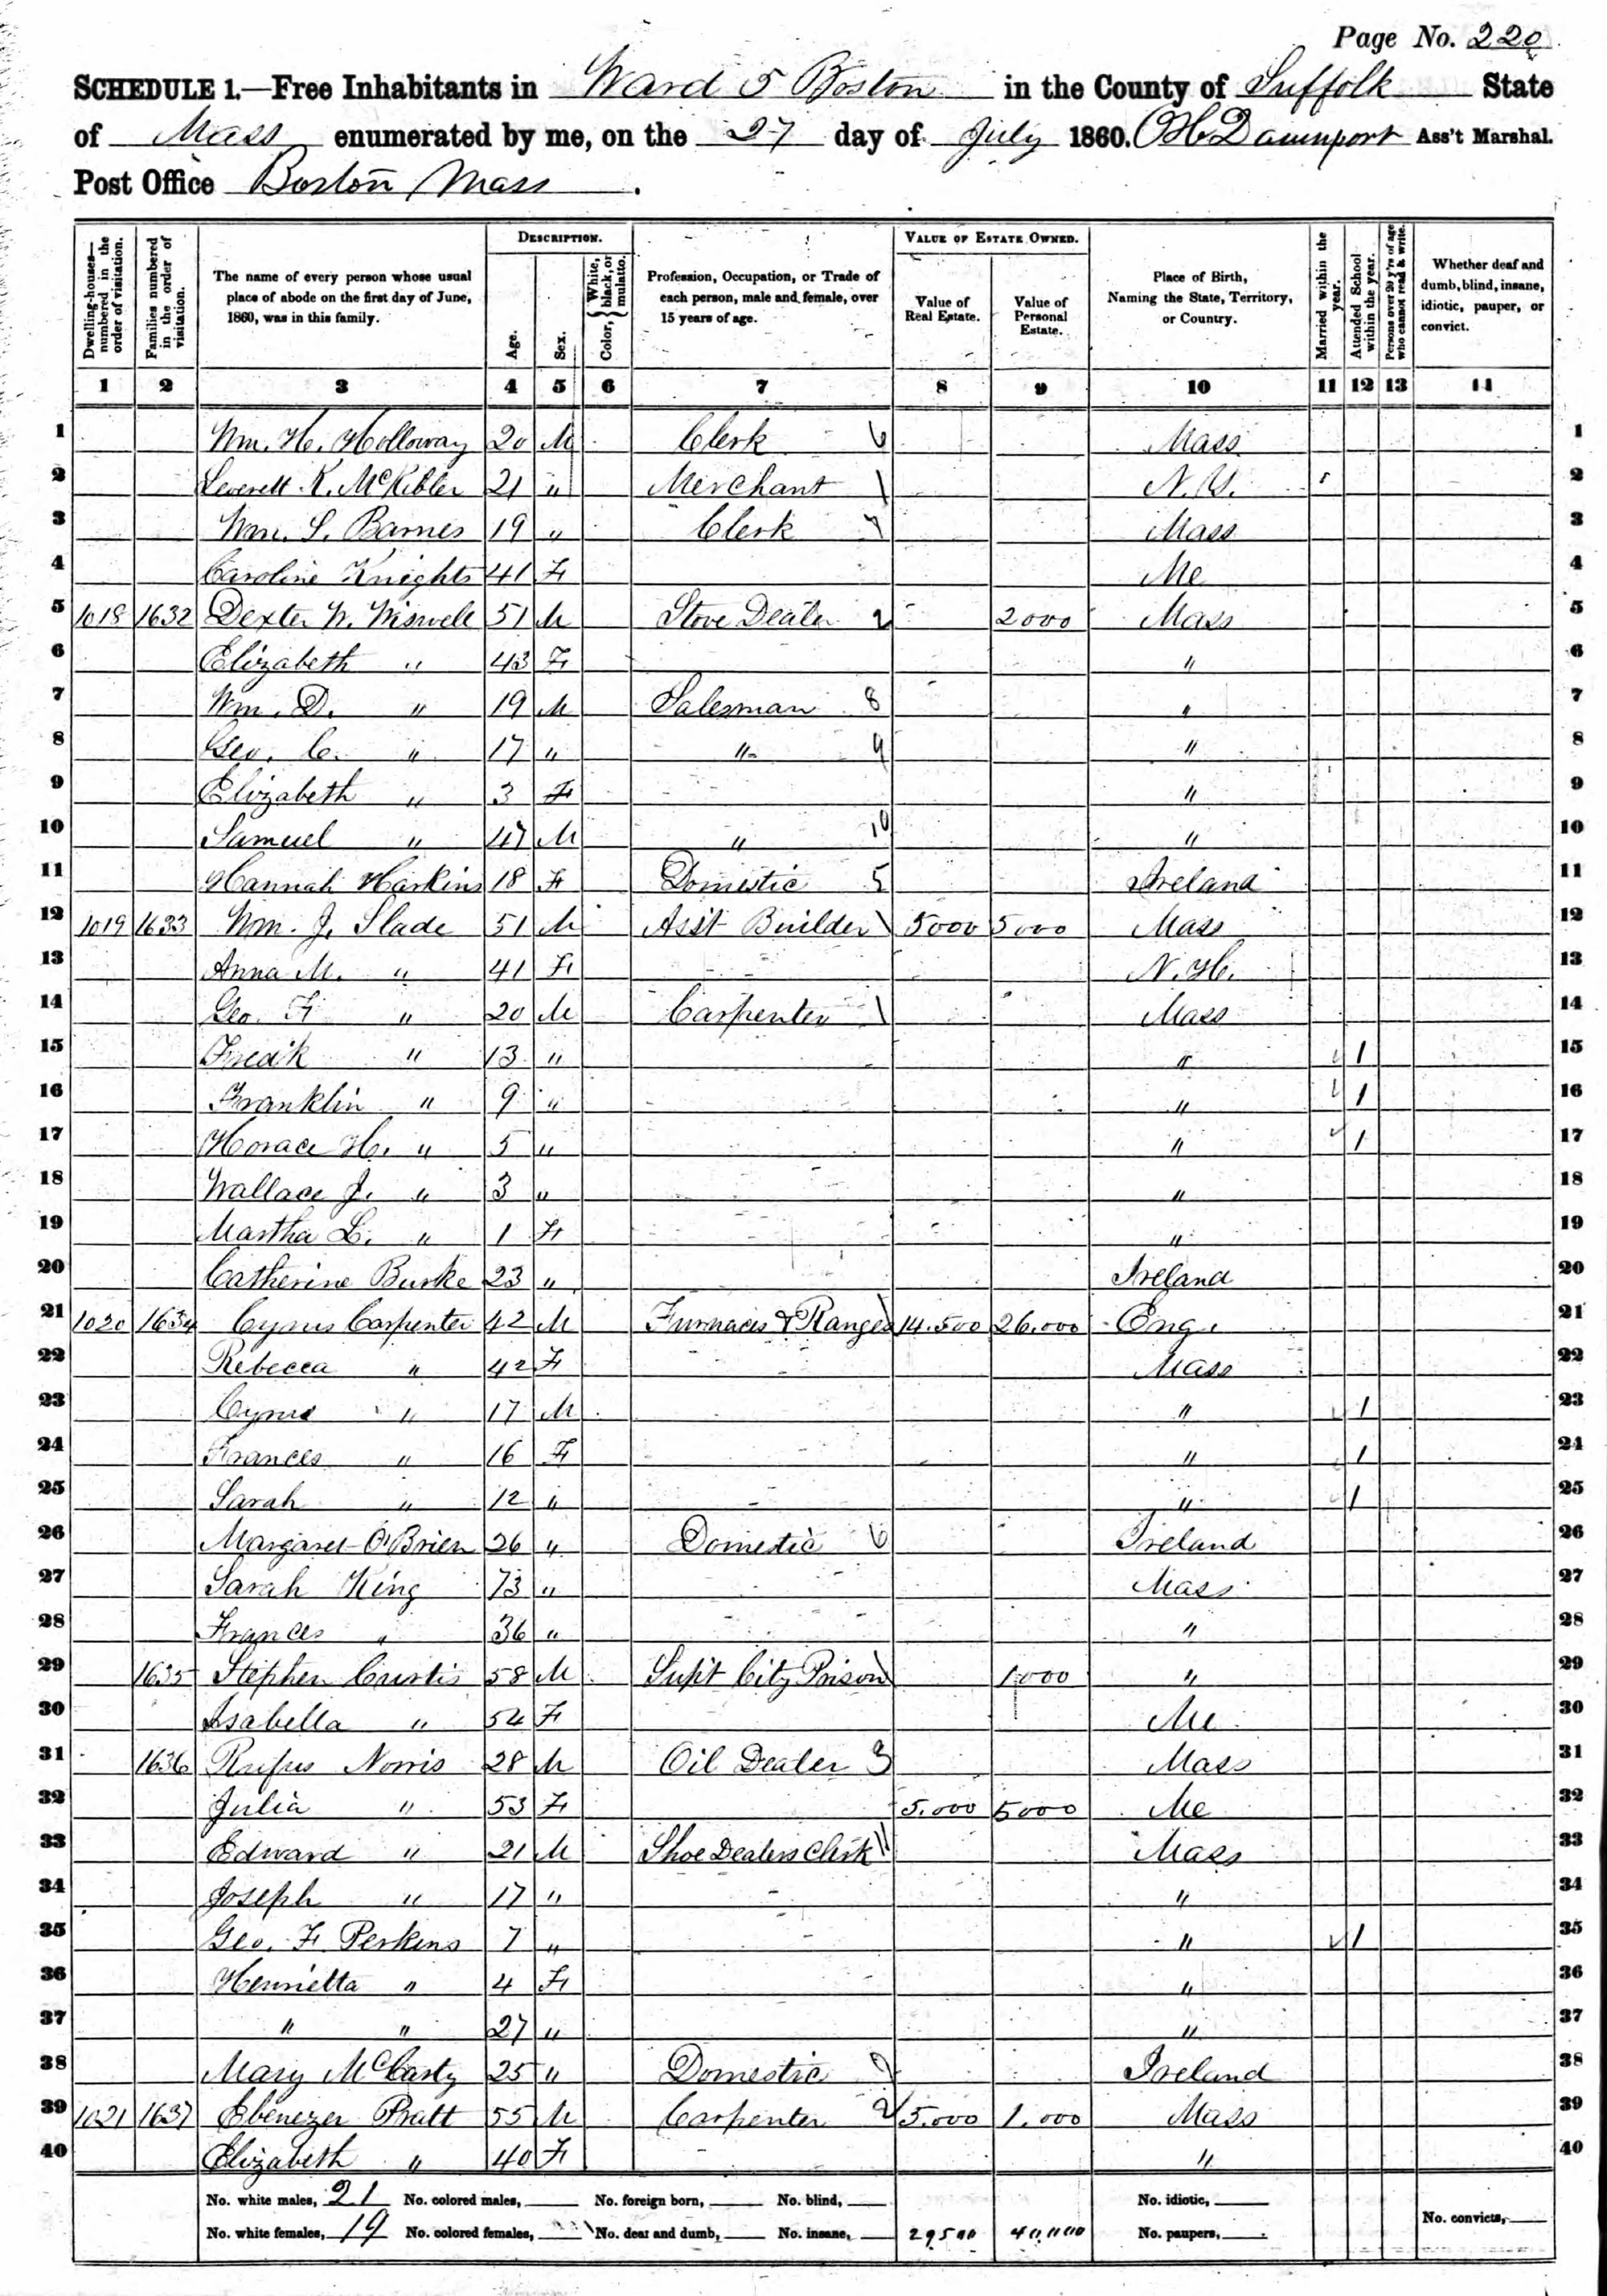 Page No. 220
SCHEDULE 1.—Free Inhabitants in Ward 5 Boston in the County of Suffolk State
of Mass enumerated by me, on the 27 day of July 1860. Davenport Ass't Marshal.
Post Office Boston Mass.
Dwelling-houses—numbered in the order of visitation. Families numbered in the order of visitation. The name of every person whose usual place of abode on the first day of June, 1860, was in this family. DESCRIPTION. Age. Sex. Color, { White, black, or mulatto. Profession, Occupation, or Trade of each person, male and female, over 15 years of age. VALUE OF ESTATE OWNED. Value of Real Estate. Value of Personal Estate. Place of Birth, Naming the State, Territory, or Country. Married within the year. Attended School within the year. Persons over 20 y'rs of age who cannot read & write. Whether deaf and dumb, blind, insane, idiotic, pauper, or convict.
1 2 3 4 5 6 7 8 9 10 11 12 13 14
1 Wm. H. Holloway 20 M Clerk 6 Mass 1
2 Leverett K. McKibler 21 " Merchant N.Y. 2
3 Wm. S. Barnes 19 " Clerk 7 Mass 3
4 Caroline Knights 41 F Me 4
5 1018 1632 Dexter N. Wiswell 51 M Stove Dealer 2 2000 Mass 5
6 Elizabeth " 43 F " 6
7 Wm. D. " 19 M Salesman 8 " 7
8 Geo. C. " 17 " " 9 " 8
9 Elizabeth " 3 F " 9
10 Samuel " 47 M " 10 " 10
11 Hannah Harkins 18 F Domestic 5 Ireland 11
12 1019 1633 Wm. J. Slade 51 M Asst Builder 5000 5000 Mass 12
13 Anna M. " 41 F N.H. 13
14 Geo. F " 20 M Carpenter Mass 14
15 Fredk " 13 " " 1 15
16 Franklin " 9 " " 1 16
17 Horace H. " 5 " " 1 17
18 Wallace J. " 3 " " 18
19 Martha L. " 1 F " 19
20 Catherine Burke 23 " Ireland 20
21 1020 1634 Cyrus Carpenter 42 M Furnaces & Ranges 14.500 26.000 Eng. 21
22 Rebecca " 42 F Mass 22
23 Cyrus " 17 M " 1 23
24 Frances " 16 F " 1 24
25 Sarah " 12 " " 1 25
26 Margaret O'Brien 26 " Domestic 6 Ireland 26
27 Sarah King 73 " Mass 27
28 Frances " 36 " " 28
29 1635 Stephen Curtis 58 M Supt City Prison 1000 " 29
30 Isabella " 54 F Me 30
31 1636 Rufus Norris 28 M Oil Dealer 3 Mass 31
32 Julia " 53 F 5.000 5000 Me 32
33 Edward " 21 M Shoe Dealers Clerk Mass 33
34 Joseph " 17 " " 34
35 Geo. F. Perkins 7 " " 1 35
36 Henrietta " 4 F " 36
37 " " 27 " " 37
38 Mary McCarty 25 " Domestic 7 Ireland 38
39 1021 1637 Ebenezer Pratt 55 M Carpenter 2 5.000 1.000 Mass 39
40 Elizabeth " 40 F " 40
No. white males, 21 No. colored males, No. foreign born, No. blind, No. idiotic,
No. white females, 19 No. colored females, No. deaf and dumb, No. insane, 29500 40,000 No. paupers, No. convicts,